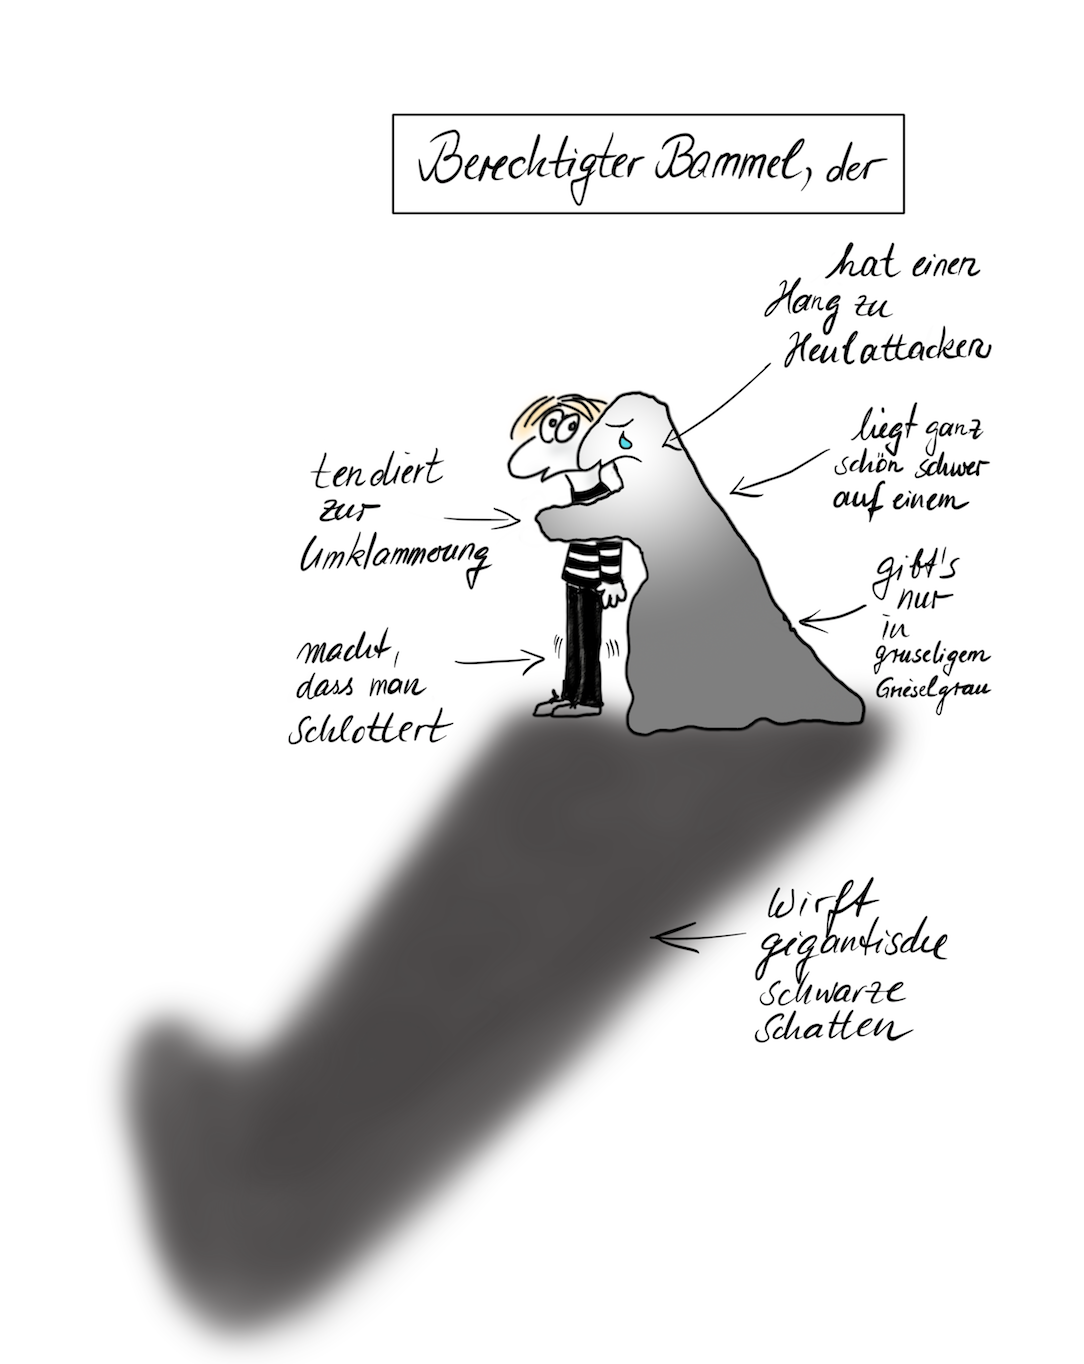 Berechtigter Bammel, der
hat einen
Hang zu
Heulattacken
liegt ganz
schön schwer
auf einem
tendiert
zur
Umklammerung
gibt's
nur
in
gruseligem
Grieselgrau
macht,
dass man
schlottert
wirft
gigantische
schwarze
Schatten